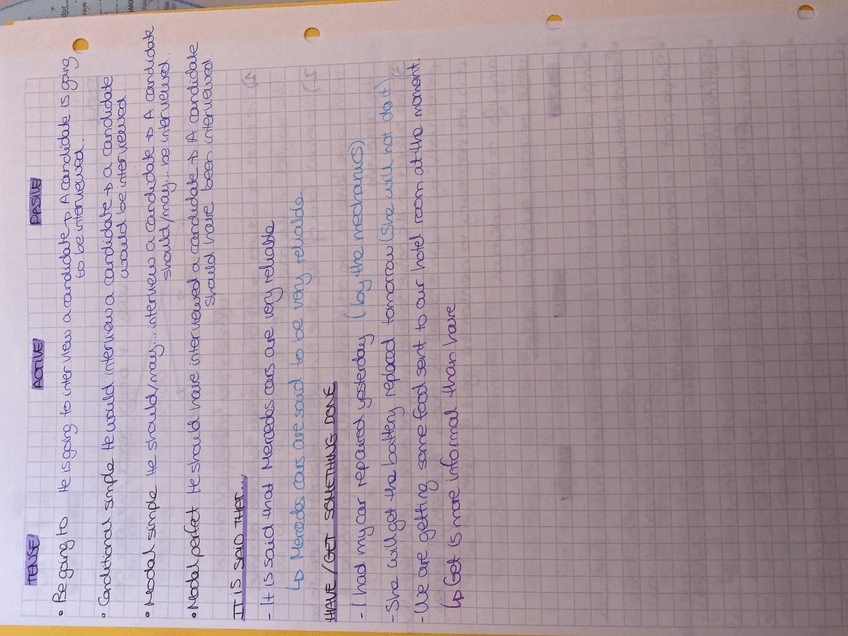 TENSE ACTIVE PASIVE
• Be going to He is going to interview a candidate → A candidate is going
to be interviewed.
• Conditional simple He would interview a candidate → a candidate
would be interviewed.
• Modal simple He should/may... interview a candidate → A candidate
should/may... be interviewed.
• Modal perfect He should have interviewed a candidate → A candidate
should have been interviewed.
IT IS SAID THAT...
- It is said that Mercedes cars are very reliable
↳ Mercedes cars are said to be very reliable
HAVE/GET SOMETHING DONE
- I had my car repaired yesterday (by the mechanics)
- She will get the battery replaced tomorrow (She will not do it)
- We are getting some food sent to our hotel room at the moment.
↳ Get is more informal than have